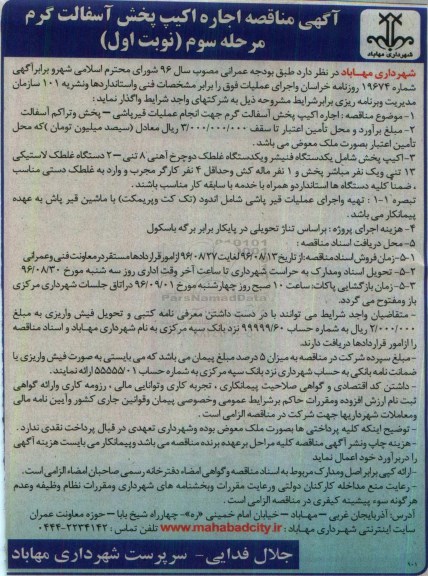 آگهی مناقصه اجاره اکیپ پخش آسفالت گرم
مرحله سوم (نوبت اول)
شهرداری مهاباد
شهرداری مهاباد در نظر دارد طبق بودجه عمرانی مصوب سال ۹۶ شورای محترم اسلامی شهر و برابر آگهی
شماره ۱۹۶۷۴ روزنامه خراسان واجرای عملیات فوق را برابر مشخصات فنی واستانداردها ونشریه ۱۰۱ سازمان
مدیریت وبرنامه ریزی برابر شرایط مشروحه ذیل به شرکتهای واجد شرایط واگذار نماید:
۱- موضوع مناقصه: اجاره اکیپ پخش آسفالت گرم جهت انجام عملیات قیرپاشی – پخش وتراکم آسفالت
۲- مبلغ برآورد و محل تأمین اعتبار تا سقف ۳/۰۰۰/۰۰۰/۰۰۰ ریال معادل (سیصد میلیون تومان) که محل
تأمین اعتبار بصورت ملک معوض می باشد.
۳- اکیپ پخش شامل یکدستگاه فنیشر ویکدستگاه غلطک دوچرخ آهنی ۸ تنی – ۲ دستگاه غلطک لاستیکی
۱۳ تنی ویک نفر مباشر پخش و ۱ نفر ماله کش وحداقل ۴ نفر کارگر مجرب و وارد به غلطک دستی مناسب
، ضمنا کلیه دستگاه ها استاندارد و همراه با خدمه با سابقه کار مناسب باشند.
تبصره ۱-۱: تهیه واجرای عملیات قیر پاشی شامل اندود (تک کت وپریمکت) با ماشین قیر پاش به عهده
پیمانکار می باشد.
۴- هزینه اجرای پروژه: براساس تناژ تحویلی در پایکار برابر برگه باسکول
۵- محل دریافت اسناد مناقصه:
۵-۱- زمان فروش اسناد مناقصه: از تاریخ ۹۶/۰۸/۱۳ لغایت ۹۶/۰۸/۲۷ از امور قراردادها مستقر در معاونت فنی وعمرانی
۵-۲- تحویل اسناد ومدارک به حراست شهرداری تا ساعت آخر وقت اداری روز سه شنبه مورخ ۹۶/۰۸/۳۰
۵-۳- زمان بازگشایی پاکات: ساعت ۱۰ صبح روز چهارشنبه مورخ ۹۶/۰۹/۰۱ در اتاق جلسات شهرداری مرکزی
باز ومفتوح می گردد.
- متقاضیان واجد شرایط می توانند با در دست داشتن معرفی نامه کتبی و تحویل فیش واریزی به مبلغ
۲/۰۰۰/۰۰۰ ریال به شماره حساب ۹۹۹۹۹/۶۰ نزد بانک سپه مرکزی به نام شهرداری مهاباد و اسناد مناقصه
را ازامور قراردادها دریافت دارند.
- مبلغ سپرده شرکت در مناقصه به میزان ۵ درصد مبلغ پیمان می باشد که می بایستی به صورت فیش واریزی یا
ضمانت نامه بانکی به حساب شهرداری نزد بانک سپه مرکزی به شماره حساب ۵۵۵۵۵/۰۱ ارائه نمایند.
- داشتن کد اقتصادی و گواهی صلاحیت پیمانکاری ، تجربه کاری وتوانایی مالی ، رزومه کاری وارائه گواهی
ثبت نام ارزش افزوده ومقررات حاکم برشرایط عمومی وخصوصی پیمان وقوانین جاری کشور وآیین نامه مالی
ومعاملات شهرداریها جهت شرکت در مناقصه الزامی است.
- توضیح اینکه کلیه پرداختی ها بصورت ملک معوض بوده وشهرداری تعهدی در قبال پرداخت نقدی ندارد.
- هزینه چاپ ونشر آگهی مناقصه کلیه مراحل برعهده برنده مناقصه می باشد وپیمانکار می بایست هزینه آگهی
را دربرآورد خود اعمال نماید
- ارائه کپی برابر اصل ومدارک مربوط به اسناد مناقصه وگواهی امضاء دفترخانه رسمی صاحبان امضاء الزامی است.
- رعایت منع مداخله کارکنان دولتی ورعایت مقررات وبخشنامه های شهرداری ومقررات نظام وظیفه وعدم
هرگونه سوء پیشینه کیفری در مناقصه الزامی است.
آدرس: آذربایجان غربی – مهاباد – خیابان امام خمینی «ره» - چهارراه شیخ بابا – حوزه معاونت عمران
سایت اینترنتی شهرداری مهاباد: www.mahabadcity.ir تلفن تماس: ۰۴۴۴-۲۲۳۴۱۴۳
جلال فدایی - سرپرست شهرداری مهاباد
ParsNamadData